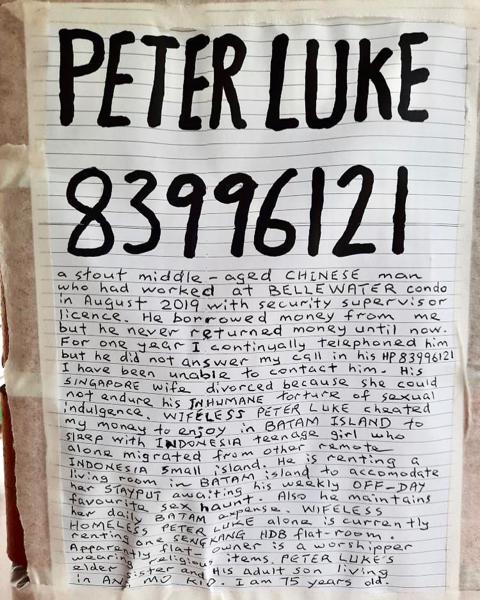 PETER LUKE
83996121
a stout middle-aged CHINESE man
who had worked at BELLEWATER condo
in August 2019 with security supervisor
licence. He borrowed money from me
but he never returned money until now.
For one year I continually telephoned him
but he did not answer my call in his HP 83996121
I have been unable to contact him. His
SINGAPORE wife divorced because she could
not endure his INHUMANE torture of sexual
indulgence. WIFELESS PETER LUKE cheated
my money to enjoy in BATAM ISLAND to
sleep with INDONESIA teenage girl who
alone migrated from other remote
INDONESIA small island. He is renting a
living room in BATAM island to accomodate
her STAYPUT awaiting his weekly OFF-DAY
favourite sex haunt. Also he maintains
her daily BATAM expense. WIFELESS
HOMELESS PETER LUKE alone is currently
renting one SENGKANG HDB flat-room.
Apparently flat-owner is a worshipper
wearing religious items. PETER LUKE'S
elder sister and HIS adult son living
in ANG MO KIO. I am 75 years old.